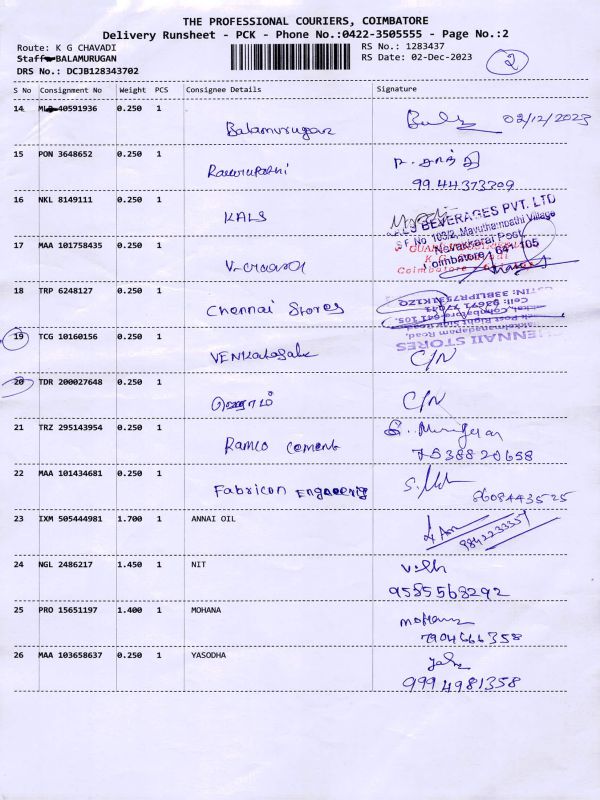 THE PROFESSIONAL COURIERS, COIMBATORE
Delivery Runsheet - PCK - Phone No.:0422-3505555 - Page No.:2
Route: K G CHAVADI
RS No.: 1283437
Staff: BALAMURUGAN
RS Date: 02-Dec-2023
2
DRS No.: DCJB128343702
S No Consignment No Weight PCS Consignee Details Signature
14 40591936 0.250 1 Balamurugan 02/12/2023
15 PON 3648652 0.250 1
9944373309
16 NKL 8149111 0.250 1 KALS
BEVERAGES PVT. LTD
S F No 103/2, Mavuthampathi Village
Navakkarai Post,
Coimbatore - 641 105
17 MAA 101758435 0.250 1
18 TRP 6248127 0.250 1 Chennai Stores
CHENNAII STORES
19 TCG 10160156 0.250 1 VENKatasala C/N
20 TDR 200027648 0.250 1 C/N
21 TRZ 295143954 0.250 1 Ramco cement
7538820658
22 MAA 101434681 0.250 1 Fabricon Engneerig
8608443525
23 IXM 505444981 1.700 1 ANNAI OIL
24 NGL 2486217 1.450 1 NIT
9585568292
25 PRO 15651197 1.400 1 MOHANA mohana
7904666358
26 MAA 103658637 0.250 1 YASODHA
9994981358